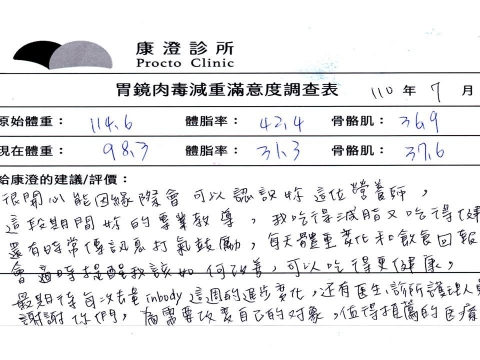 康澄診所
Procto Clinic
胃鏡肉毒減重滿意度調查表 110 年 7 月
原始體重： 114.6 體脂率： 42.4 骨骼肌： 36.9
現在體重： 98.3 體脂率： 31.3 骨骼肌： 37.6
給康澄的建議/評價：
很開心能因緣際會可以認識妳這位營養師，
這段期間妳的專業教導，我吃得減脂又吃得健
還有時常傳訊息打氣鼓勵，每天體重變化和飲食回報
會適時提醒我該如何改善，可以吃得更健康，
最期待每次去量inbody這週的進步變化，還有醫生、診所護理人員
謝謝你們，需要改變自己的對象，值得推薦的醫療